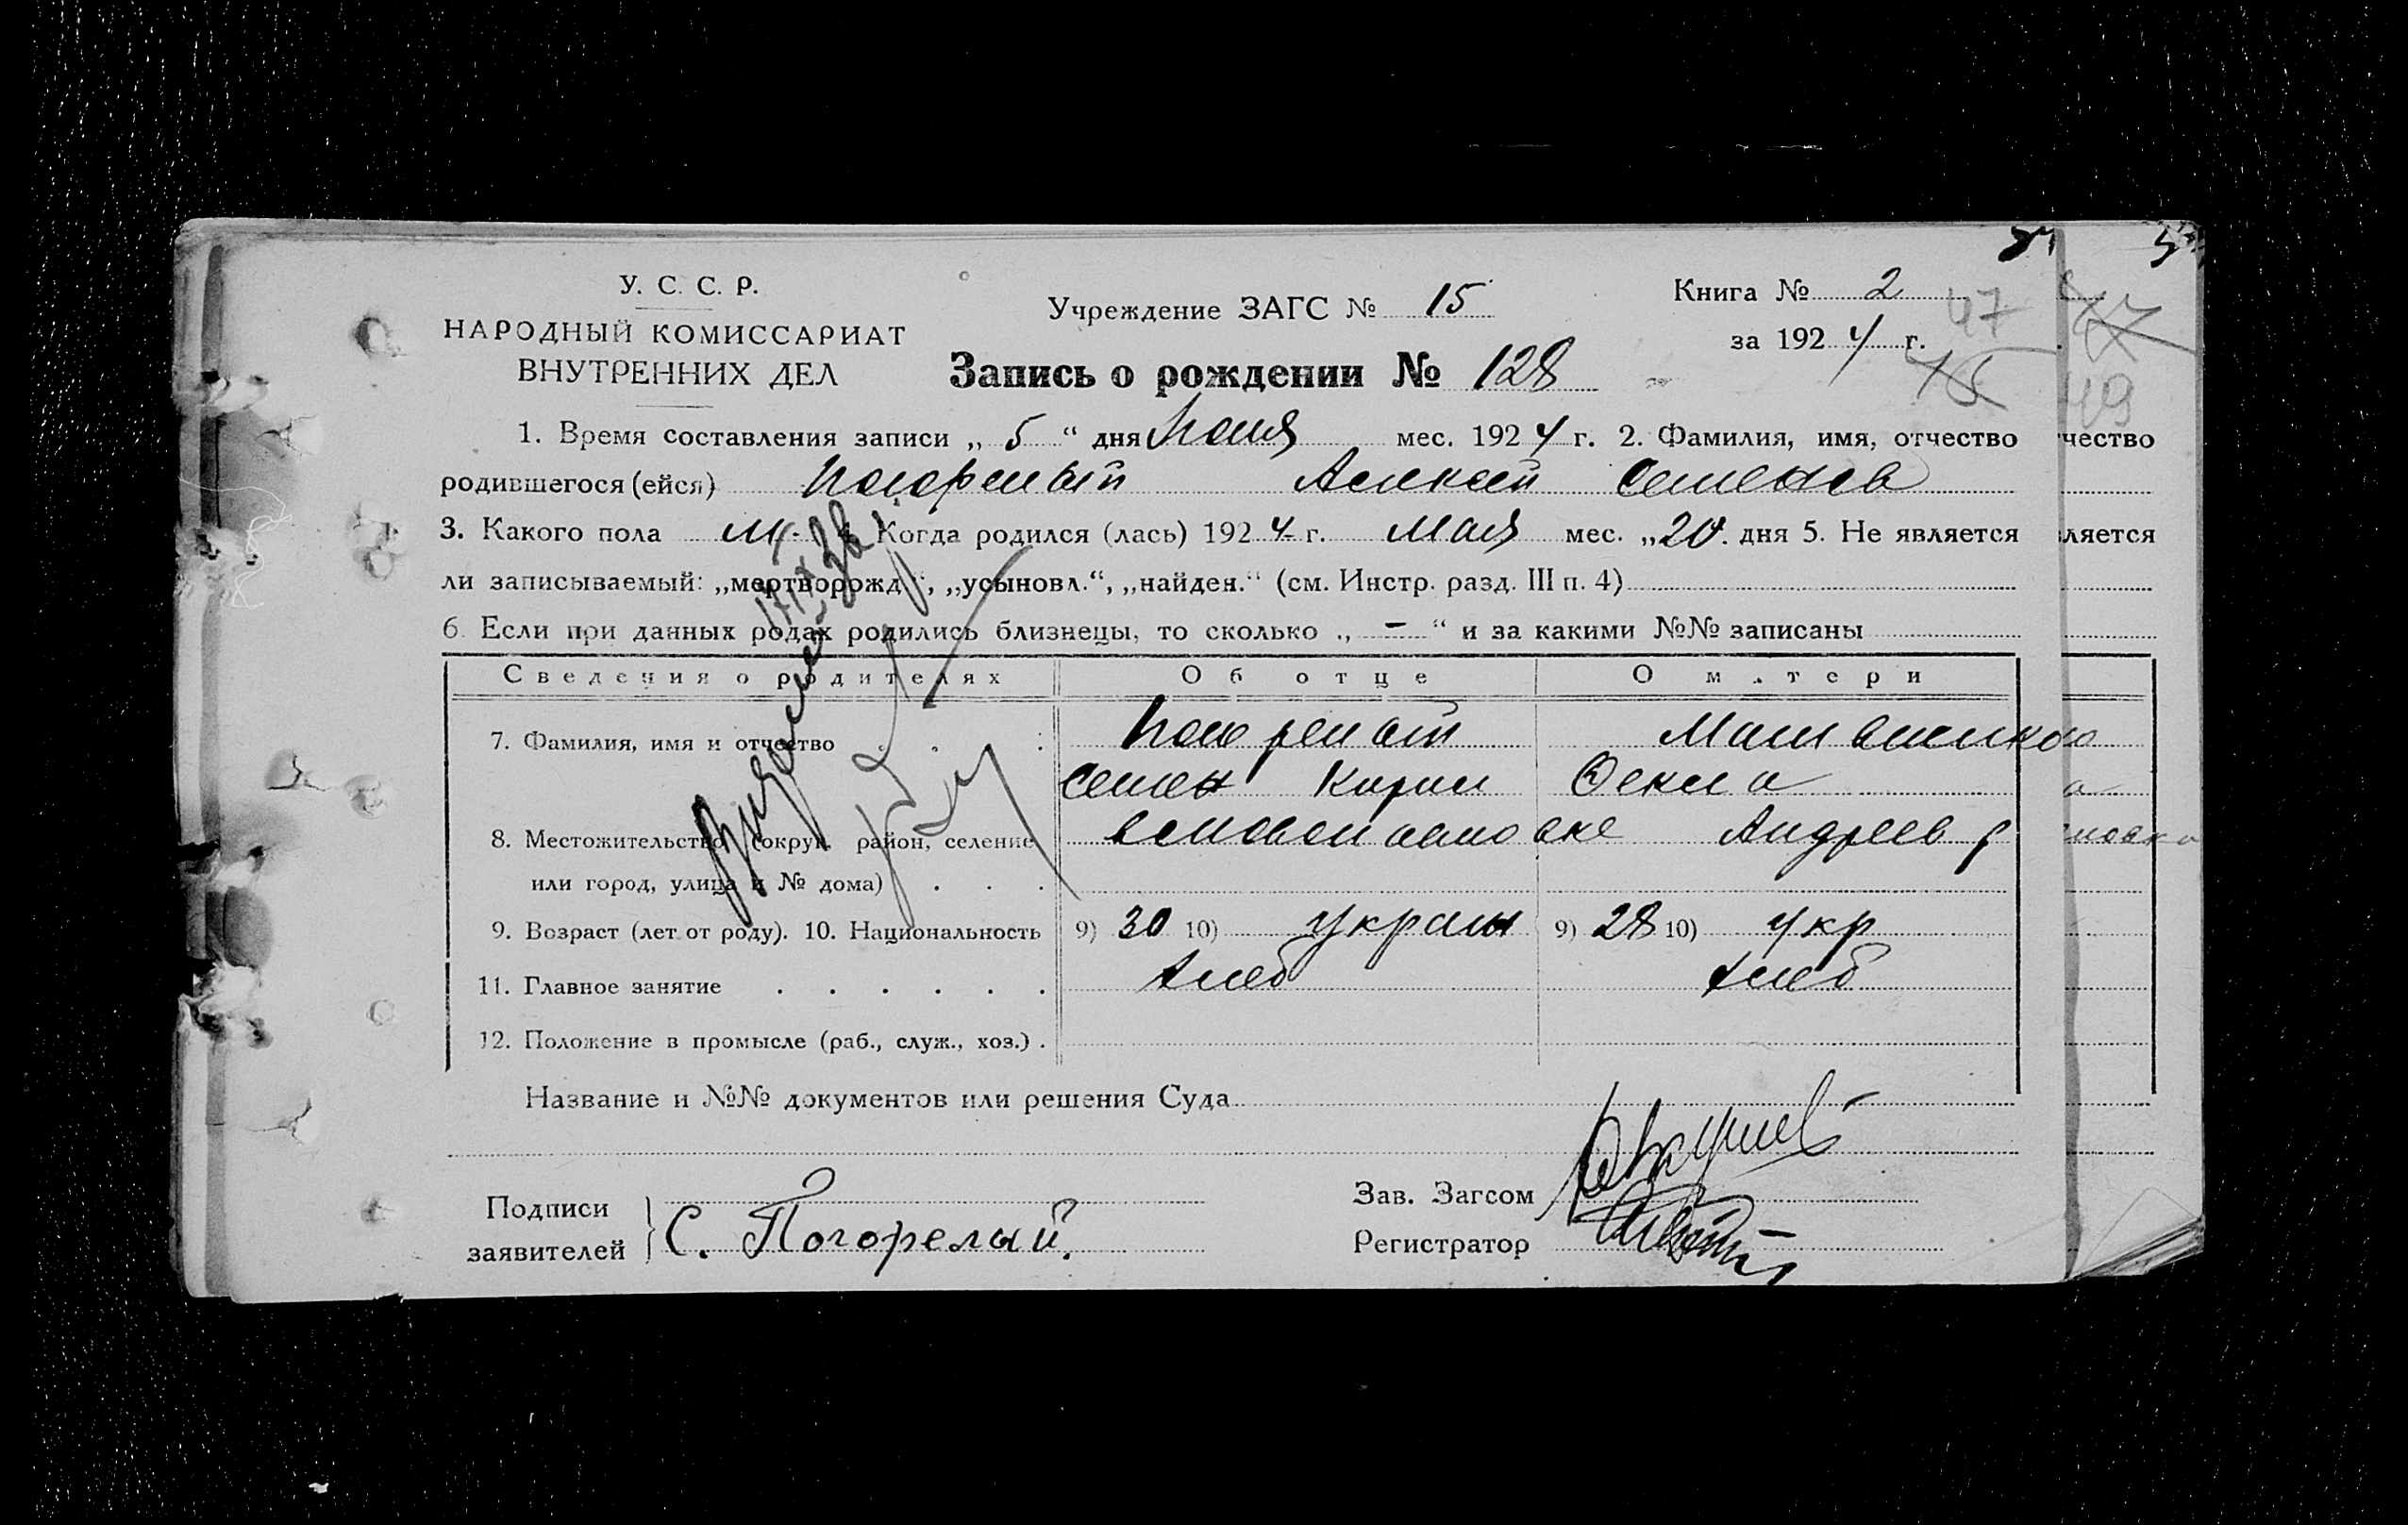 У. С. С. Р.
НАРОДНЫЙ КОМИССАРИАТ
ВНУТРЕННИХ ДЕЛ
Учреждение ЗАГС № 15
Книга № 2
за 1924 г.
47
15
49
Запись о рождении № 128
1. Время составления записи „ 5 “ дня мес. 1924 г. 2. Фамилия, имя, отчество
чество
родившегося (ейся) Погорелый Алексей Семенов
3. Какого пола м. 4. Когда родился (лась) 1924 г. Мая мес. „20. дня 5. Не является
ляется
ли записываемый: „мертворожд.“, „усыновл.“, „найден.“ (см. Инстр. разд. III п. 4)
6. Если при данных родах родились близнецы, то сколько „ - “ и за какими №№ записаны
Сведения о родителях Об отце О матери
7. Фамилия, имя и отчество Погорелый
Семен Кирил Фекла
8. Местожительство (округ, район, селение Андреев
или город, улица и № дома)
9. Возраст (лет от роду). 10. Национальность 9) 30 10) Украин 9) 28 10) Укр
11. Главное занятие Хлеб Хлеб
12. Положение в промысле (раб., служ., хоз.)
Название и №№ документов или решения Суда
Подписи
заявителей
С. Погорелый.
Зав. Загсом
Регистратор